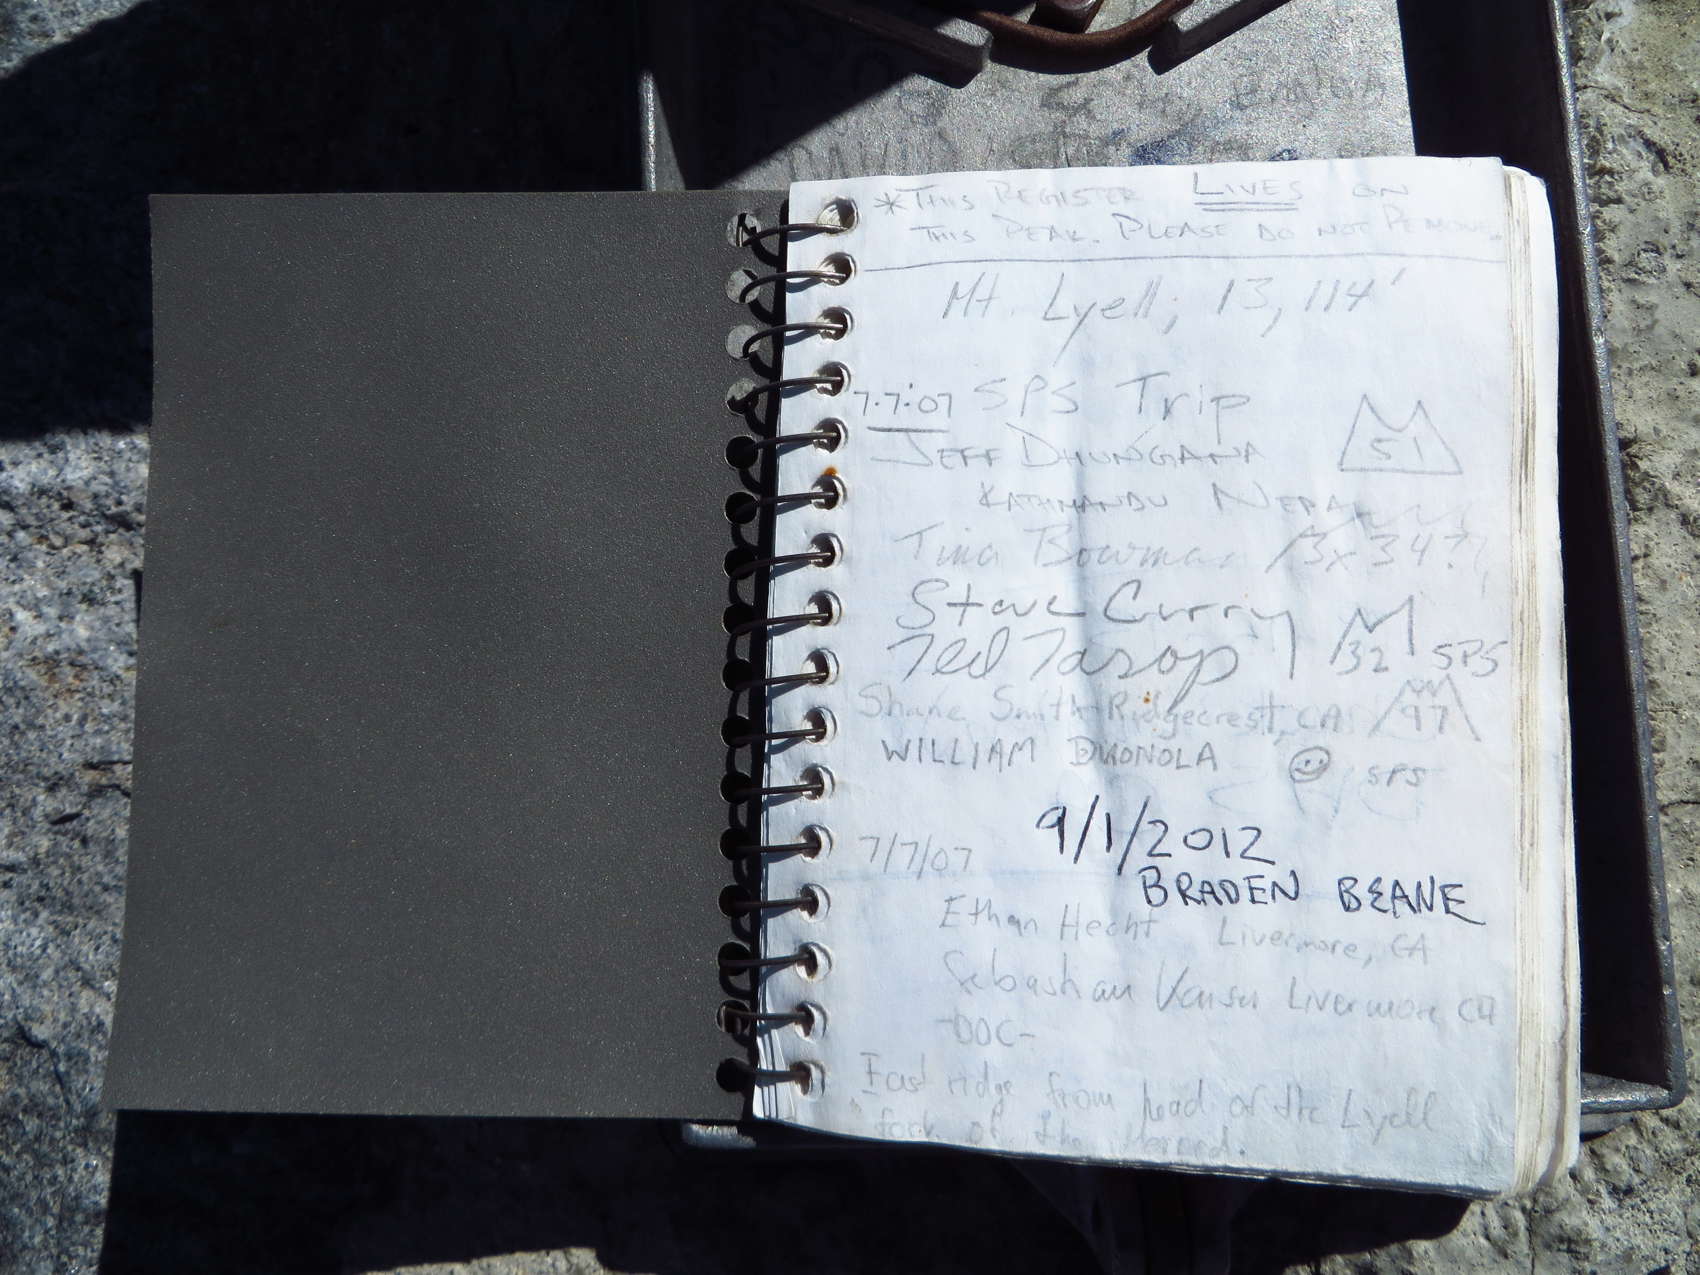 *THIS REGISTER LIVES ON
THIS PEAK. PLEASE DO NOT REMOVE.
Mt. Lyell, 13,114'
7.7.07 SPS Trip
JEFF DHUNGANA 51
KATHMANDU NEPAL
Tina Bowman
Steve Curry
Ted 32 SPS
Shane Smith Ridgecrest, CA 97
WILLIAM SPS
9/1/2012
7/7/07
BRADEN BEANE
Ethan Hecht Livermore, CA
Livermore CA
-DOC-
East ridge from head of the Lyell
fork of the Merced.